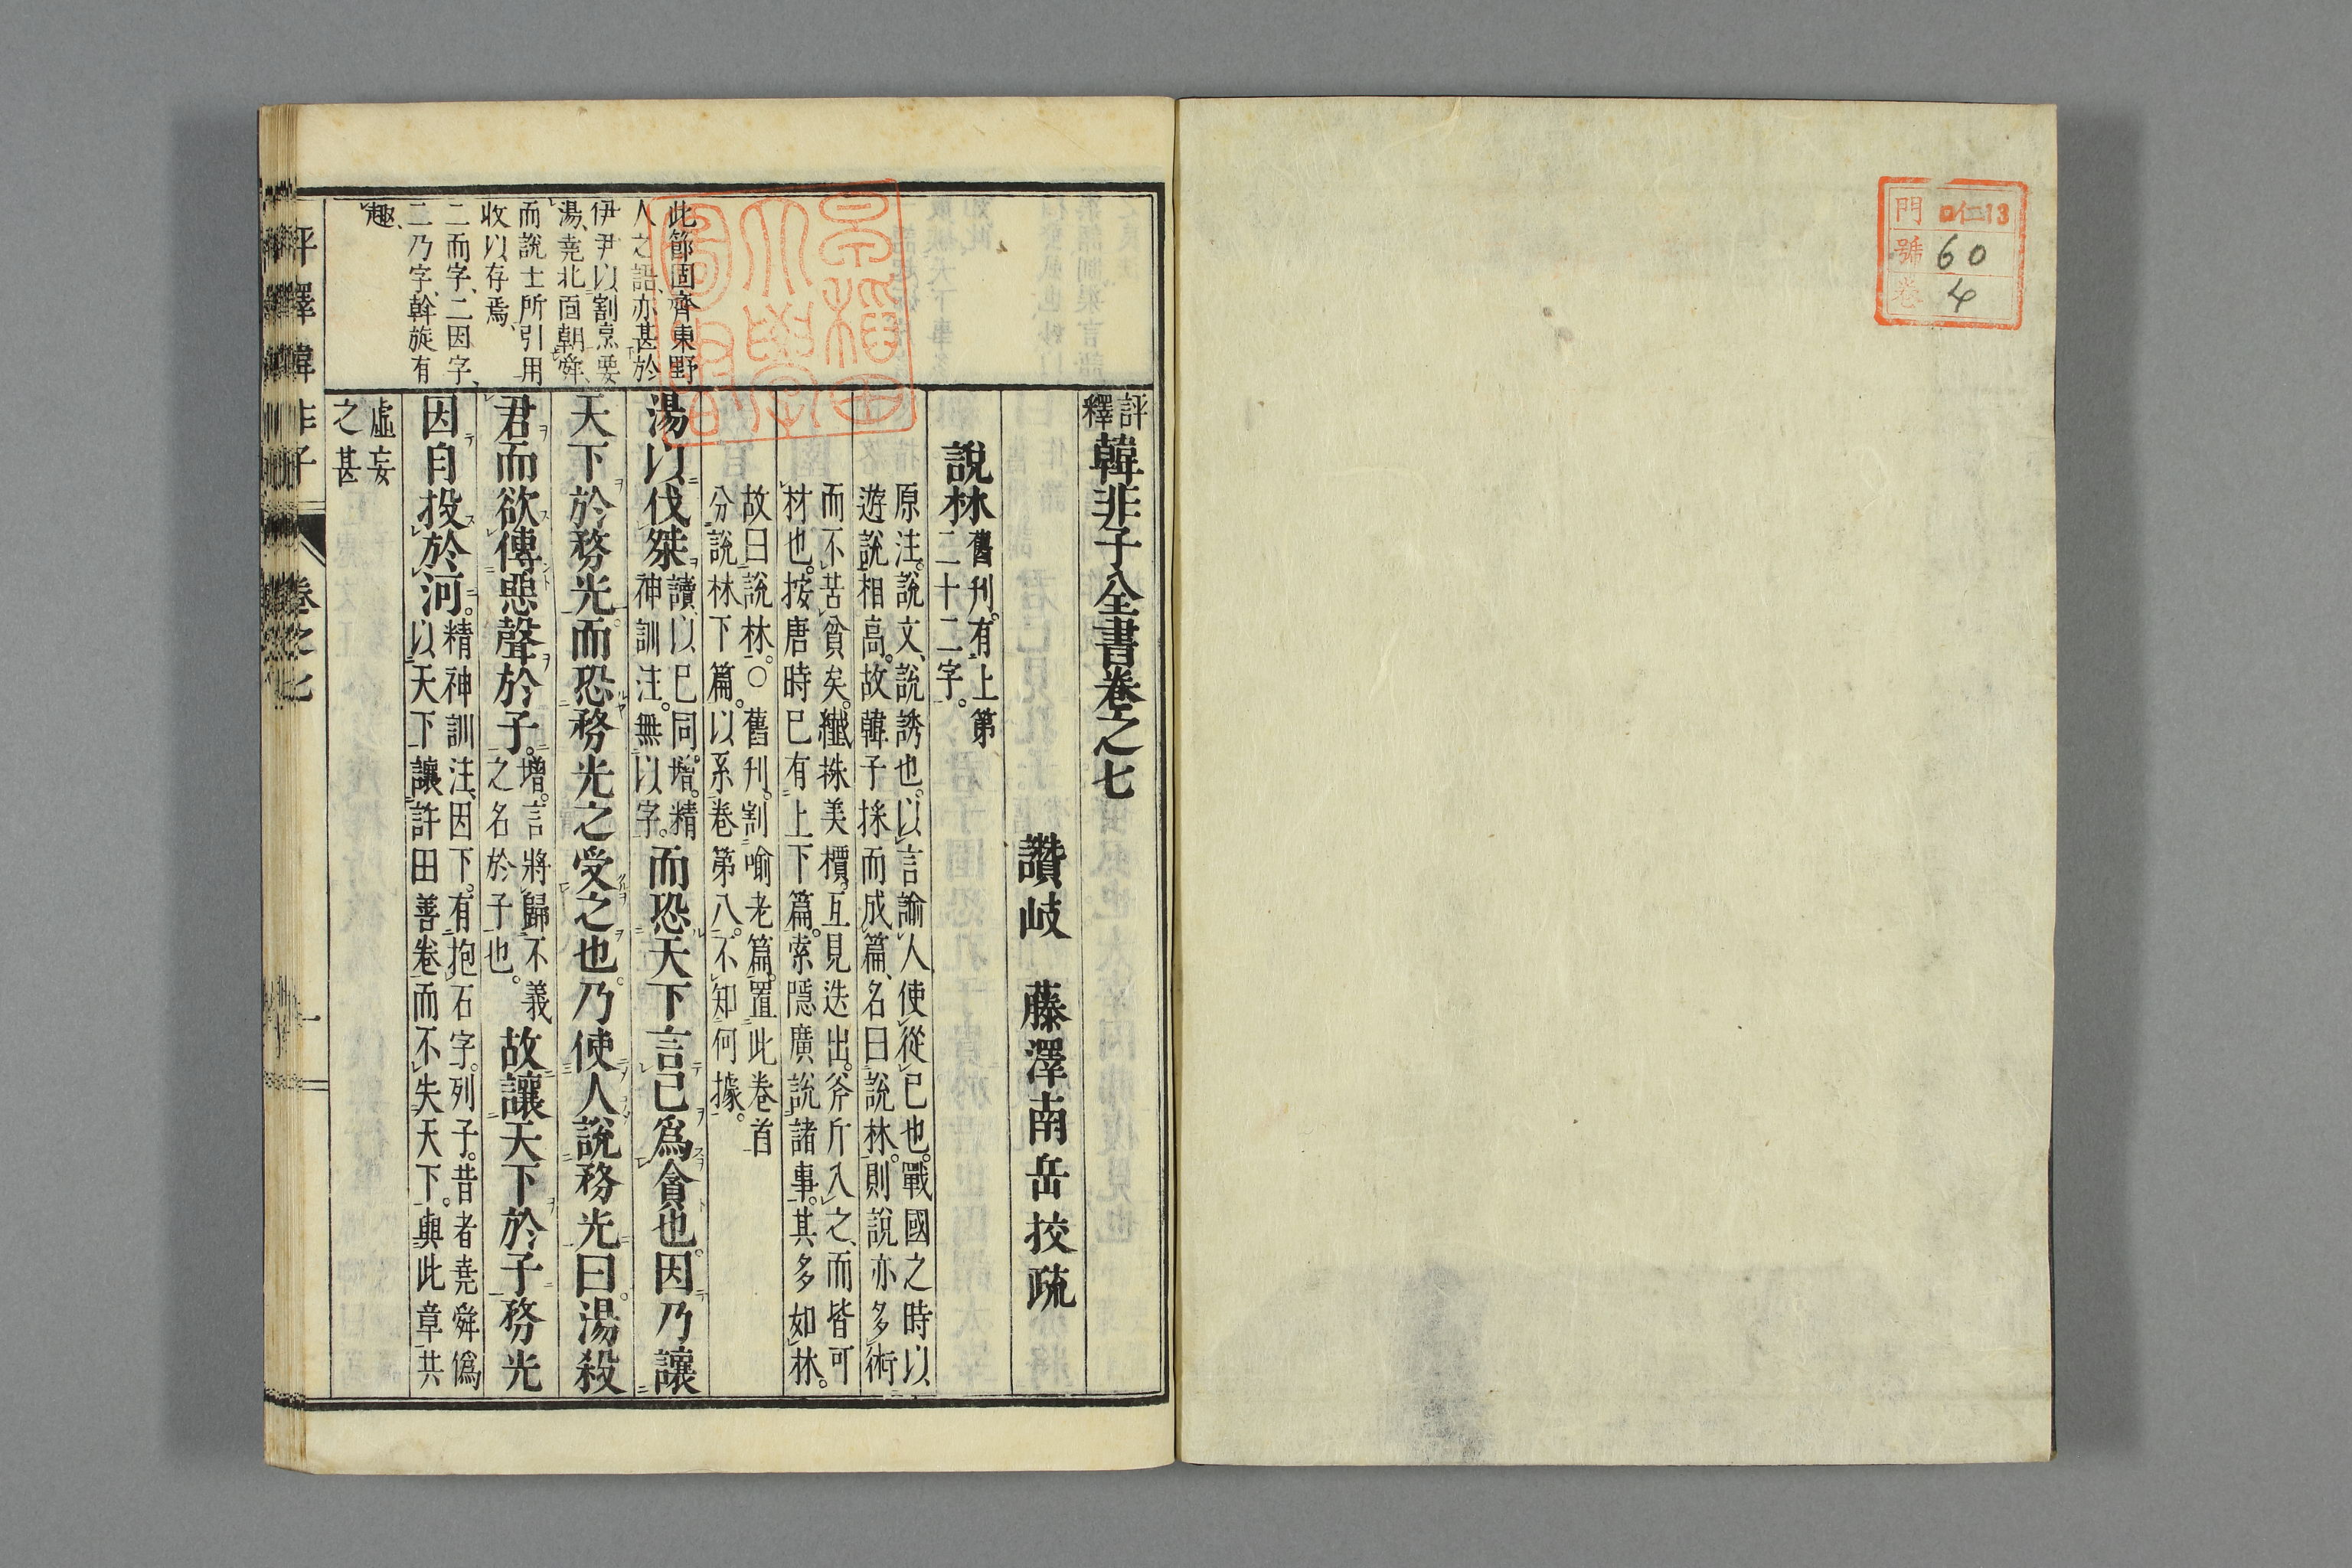 門 ロ仁13
號 60
卷 4
評釋韓非子全書卷之七
讚岐 藤澤南岳挍疏
說林
舊刊。有上第
二十二字。
原注。說文、說誘也。以言諭人使從已也。戰國之時以
遊說相高。故韓子採而成篇、名曰說林。則說亦多術
而不苦貧矣。纖株美櫝。互見迭出。斧斤入之、而皆可
材也。按唐時已有上下篇。索隱廣說諸事。其多如林。
故曰說林。○舊刊。割喻老篇。置此卷首
分說林下篇。以系卷第八。不知何據。
湯以伐桀
讀、以已同。增。精
神訓注。無以字。
而恐天下言已爲貪也。因乃讓
天下於務光。而恐務光之受之也。乃使人說務光曰。湯殺
君而欲傳惡聲於子。
增。言將歸不義
之名於子也。
故讓天下於子務光
因自投於河。
精神訓注、因下。有抱石字。列子。昔者堯舜僞
以天下讓許由善卷而不失天下。與此章共
虛妄
之甚
此節固齊東野
人之語、亦甚於
伊尹以割烹要
湯、堯北面朝舜、
而說士所引用
收以存焉、
二而字、二因字、
二乃字、斡旋有
趣、
評釋韓非子
卷之七
一